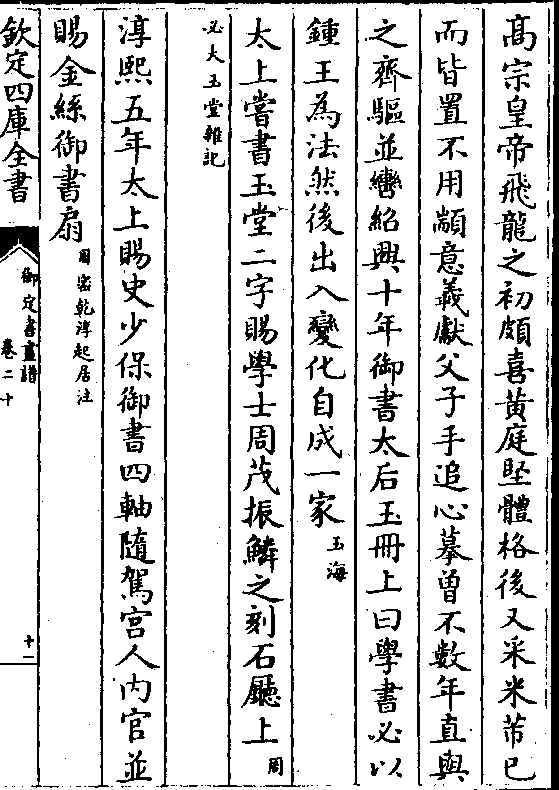 高宗皇帝飛龍之初頗喜黄庭堅體格後又采米芾已
而皆置不用顓意羲獻父子手追心摹曾不數年直與
之齊驅並轡紹興十年御書太后玉冊上曰學書必以
鍾王為法然後出入變化自成一家玉海
太上嘗書玉堂二字賜學士周茂振鱗之刻石廳上周
必大玉堂雜記
淳熙五年太上賜史少保御書四軸隨駕宫人内官並
賜金絲御書扇周密乾淳起居注
欽定四庫全書
御定書畫譜
卷二十
十一